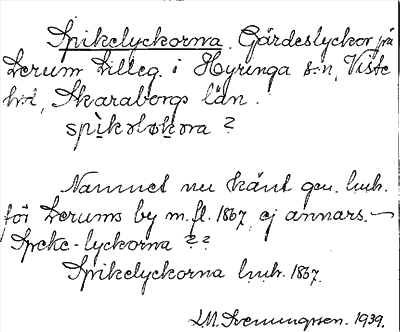 Spikelyckorna. Gärdeslyckor på
Lerum Lilleg. i Hyringa s:n, Viste
hrd, Skaraborgs län.
spìkoløkora ?
Namnet nu känt gm. huh.
för Lerums by m.fl. 1867, ej annars. —
Speke-lyckorna ??
Spikelyckorna huh. 1867.
Svenungsson. 1939.